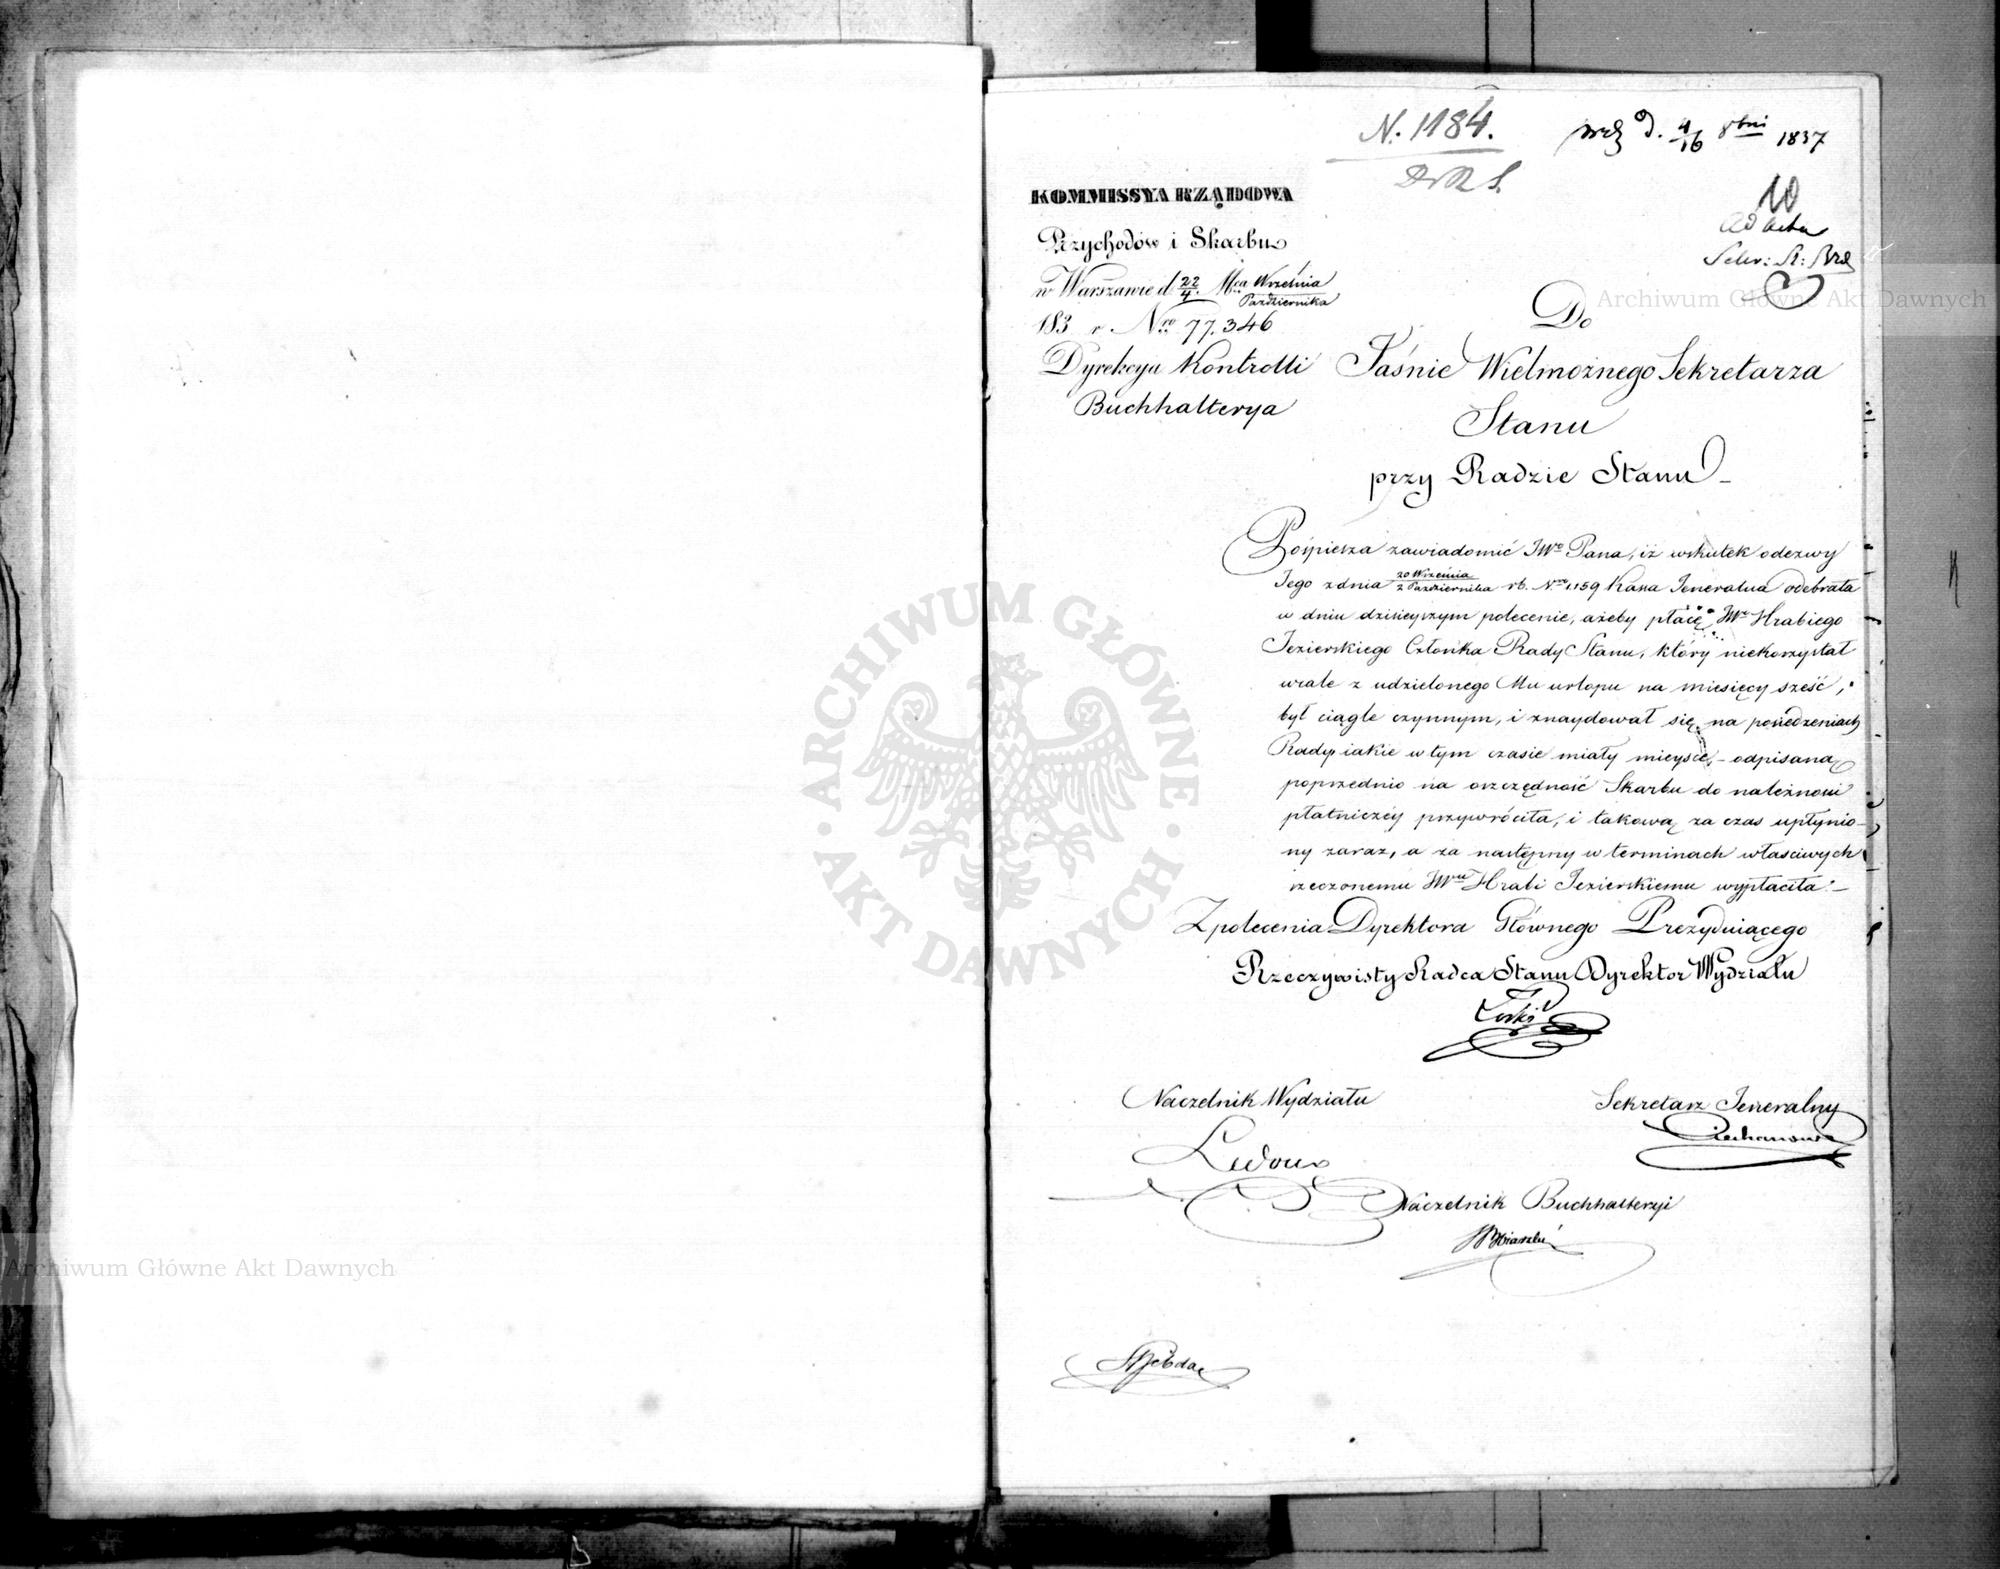 N. 1184.
d. 4/16 8bni 1837
10
ad acta
Sekr: St:
KOMMISSYA RZĄDOWA
Przychodów i Skarbu
w Warszawie d. 22/4. Mca Września/Października
183 r Nro 77.346
Dyrekcya Kontrolli
Buchhalterya
Do
Jaśnie Wielmożnego Sekretarza
Stanu
przy Radzie Stanu
Pośpiesza zawiadomić JWo Pana, iż wskutek odezwy
Jego z dnia 20 Września/2 Października rb. Nro 1159 Kassa Jeneralna odebrała
w dniu dzisieyszym polecenie, ażeby płacę JWo Hrabiego
Jezierskiego Członka Rady Stanu, który niekorzystał
wcale z udzielonego Mu urlopu na miesięcy sześć,
był ciągle czynnym, i znaydował się na posiedzeniach
Rady, iakie w tym czasie miały mieysce, – odpisaną
poprzednio na oszczędność Skarbu do należności
płatniczéy przywróciła, i takową za czas upłynio-
ny zaraz, a za następny w terminach właściwych
rzeczonemu JWu Hrabi Jezierskiemu wypłaciła. –
Z polecenia Dyrektora Głównego Prezyduiącego
Rzeczywisty Radca Stanu Dyrektor Wydziału
Naczelnik Wydziału
Sekretarz Jeneralny
Ledoux
Naczelnik Buchhalteryi
ARCHIWUM GŁÓWNE
AKT DAWNYCH
Archiwum Główne Akt Dawnych
Archiwum Główne Akt Dawnych